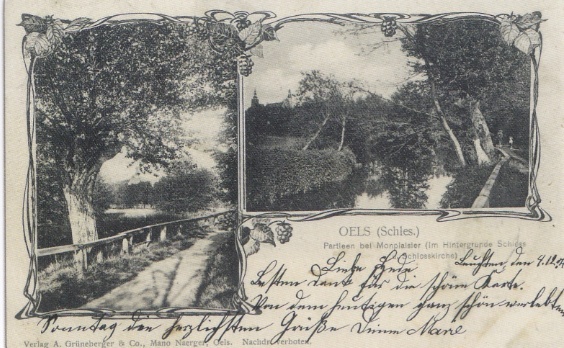 OELS (Schles.)
Partieen bei Monplaisier (im Hintergrunde Schloss
Schlosskirche)
Liebe
Besten Dank für die schöne Karte.
Von dem heutigen ganz schön verlebten
Sonntag die herzlichsten Grüße Deine
Verlag A. Grüneberger & Co., Mano Naerger, Oels. Nachdr. verboten.